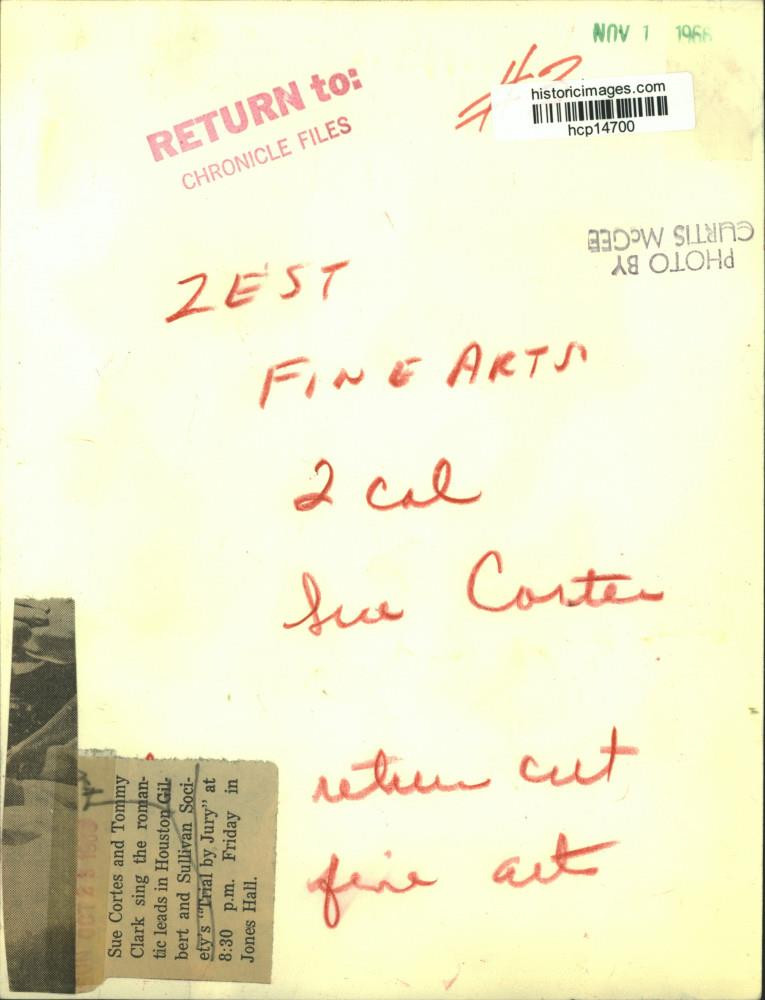 NOV 1 1966
RETURN to:
CHRONICLE FILES
#2
historicimages.com
hcp14700
PHOTO BY
CURTIS McGEE
ZEST
FINE ARTS
2 col
Sue Cortes
return cut
fine arts
Sue Cortes and Tommy
Clark sing the roman-
tic leads in Houston Gil-
bert and Sullivan Soci-
ety's "Trial by Jury" at
8:30 p.m. Friday in
Jones Hall.